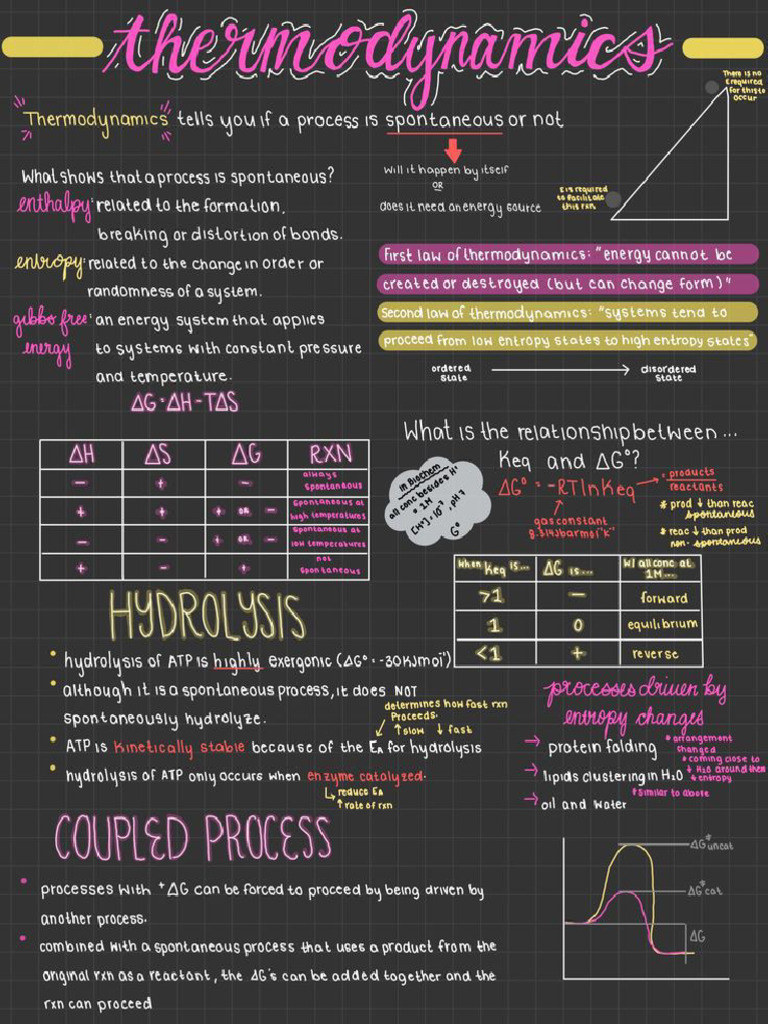 thermodynamics
There is no
E required
for this to
occur
Thermodynamics tells you if a process is spontaneous or not
will it happen by itself
OR
does it need an energy source
E is required
to facilitate
this rxn
What shows that a process is spontaneous?
enthalpy: related to the formation,
breaking or distortion of bonds.
entropy: related to the change in order or
randomness of a system.
gibbs free energy: an energy system that applies
to systems with constant pressure
and temperature.
ΔG=ΔH-TΔS
first law of thermodynamics: "energy cannot be
created or destroyed (but can change form)"
second law of thermodynamics: "systems tend to
proceed from low entropy states to high entropy states"
ordered state → disordered state
ΔH ΔS ΔG RXN
- + - always spontaneous
+ + + OR - spontaneous at high temperatures
- - + OR - spontaneous at low temperatures
+ - + not spontaneous
What is the relationship between...
Keq and ΔG°?
in Biochem
all conc besides H⁺
= 1M
[H⁺]=10⁻⁷, pH 7
G°
ΔG° = -RTlnKeq → products
reactants
gas constant
* prod ↓ than reac
spontaneous
* reac ↓ than prod
non-spontaneous
When Keq is... ΔG is... W/ all conc at 1M...
>1 - forward
1 0 equilibrium
<1 + reverse
HYDROLYSIS
• hydrolysis of ATP is highly exergonic (ΔG°=-30KJmol⁻¹)
• although it is a spontaneous process, it does NOT
spontaneously hydrolyze.
determines how fast rxn
proceeds.
↑ slow ↓ fast
• ATP is kinetically stable because of the EA for hydrolysis
• hydrolysis of ATP only occurs when enzyme catalyzed.
↳ reduce EA
↑ rate of rxn
processes driven by
entropy changes
→ protein folding * arrangement
changed
→ lipids clustering in H₂O * coming close to
↓ H₂O around them
& entropy
→ oil and water * similar to above
COUPLED PROCESS
• processes with +ΔG can be forced to proceed by being driven by
another process.
• combined with a spontaneous process that uses a product from the
original rxn as a reactant, the ΔG's can be added together and the
rxn can proceed
ΔG*uncat
ΔG*cat
ΔG